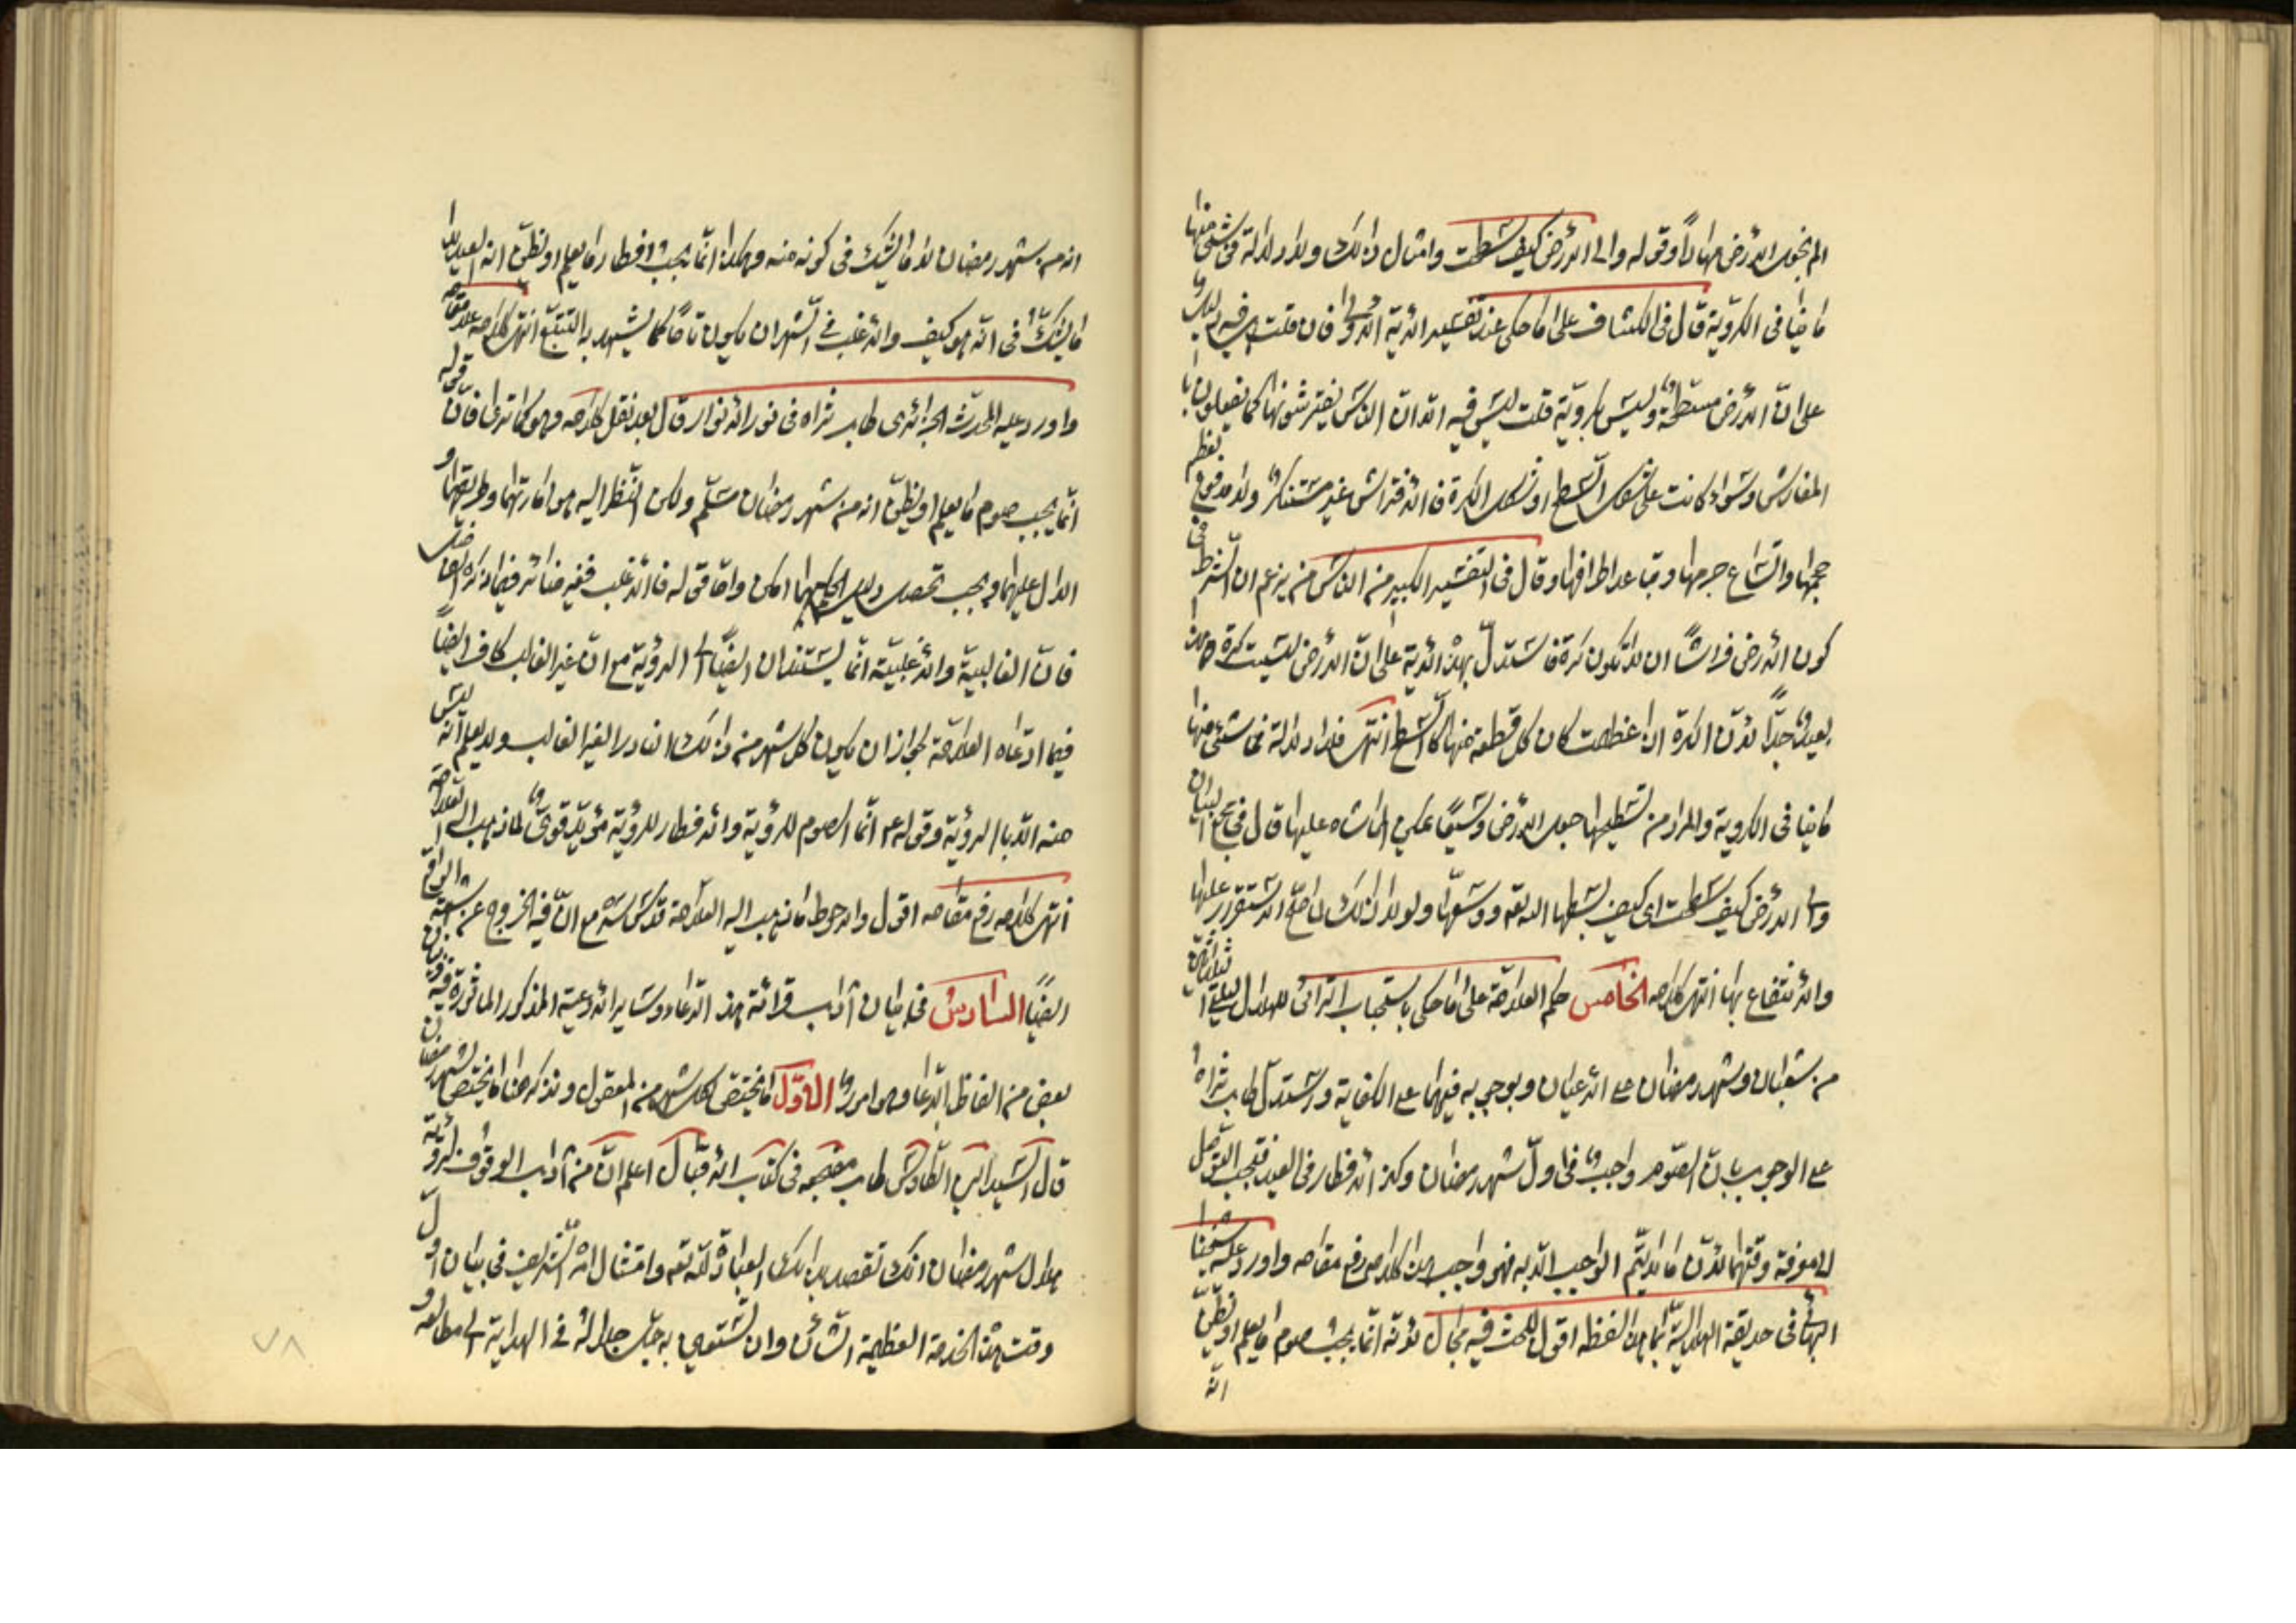 الم نجعل الأرض مهادا وقوله والى الأرض كيف سطحت وامثال ذلك ولا دلالة فى شئ منها
ما ينافى الكروية قال فى الكشاف على ما حكى عند تفسير الآية الاولى فان قلت هل فيه دليل
على ان الأرض مسطحة وليس بكروية قلت ليس فيه الا ان الناس يفترشونها كما يفعلون با
المفارش وسواء كانت على شكل السطح او شكل الكرة فالافتراش غير مستنكر ولا مدفوع لعظم
حجمها واتساع جرمها وتباعد اطرافها وقال فى التفسير الكبير من الناس من يزعم ان الشرط فى
كون الأرض فراشا ان لا تكون كرة فاستدل بهذه الآية على ان الأرض ليست كرة وهذا
بعيد جدا لأن الكرة اذا عظمت كان كل قطعة منها كالسطح انتهى فلا دلالة فى شئ منها
ما ينافى الكروية والمراد من تسطيحها جعل الأرض وسيعا يمكن المشاه عليها قال فى مجمع البيان
والى الأرض كيف سطحت اى كيف بسطها الله تعه ووسعها ولولا ذلك لما صح الاستقرار عليها
والانتفاع بها انتهى كلامه الخامس حكم العلامة على ما حكى باستحباب الترائى للهلال ليلة الثلاثين
من شعبان وشهر رمضان على الأعيان وبوجوبه فيهما على الكفاية واستدل طاب ثراه
على الوجوب بان الصوم واجب فى اول شهر رمضان وكذا الافطار فى العيد فيجب التوصل
الى معرفة وقتهما لأن ما لا يتم الواجب الا به فهو واجب هذا كلامه رفع مقامه واورد عليه شيخنا
البهائى فى حديقة الهلالية بما هذا لفظه اقول للبحث فيه مجال لانه انما يجب صوم ما يعلم او يظن
انه
انه من شهر رمضان لا ما الشك فى كونه منه وهكذا انما يجب افطار ما يعلم او يظن انه العيد لا
ما يشك فى انه هو كيف والأغلب فى الشهر ان يكون تاما كما يشهد به التتبع انتهى كلامه علا مقامه
واورد عليه المحدث الجزائرى طاب ثراه فى نور الأنوار قال بعد نقل كلامه وهو كما ترى فان قوله
انما يجب صوم ما يعلم او يظن انه من شهر رمضان مسلم ولكن النظر اليه هو امارتهما وطريقهما و
الدال عليهما ويجب تحصيل دليل الحكم مهما امكن واما قوله فالأغلب ففيه مناش فيما ذكره ايضا
فان الغالبية والأغلبية انما يستندان ايضا الى الرؤية مع ان غير الغالب كاف ايضا
فيما ادعاه العلامة لجواز ان يكون كل شهر من ذلك النادر الغير الغالب ولا يعلم انه ليس
منه الا بالرؤية وقوله ع انما الصوم للرؤية والافطار للرؤية مؤيد قوى لما ذهب اليه العلامة
انتهى كلامه رفع مقامه اقول والاحوط ما ذهب اليه العلامة قدس سره مع ان فيه الخروج عن
ايضا السادس فى بيان آداب قرائة هذا الدعاء وساير الأدعية المذكور المأثورة
بعض من الفاظ الدعا وهو امور الاول ما يختص لكل شهر من المعقول ونذكر هنا ما يختص لشهر رمضان
قال السيد ابن الطاوس طاب مضجعه فى كتاب الأقبال اعلم ان من آداب الوقوف لرؤية
هلال شهر رمضان انك تقصد بذلك العبادة لله تعه وامتثال امره الشريف فى بيان اول
وقت هذه الخدمة العظيمة الشأن وان تستعين به جل جلاله فى الهداية الى مطالعه و
٧٨